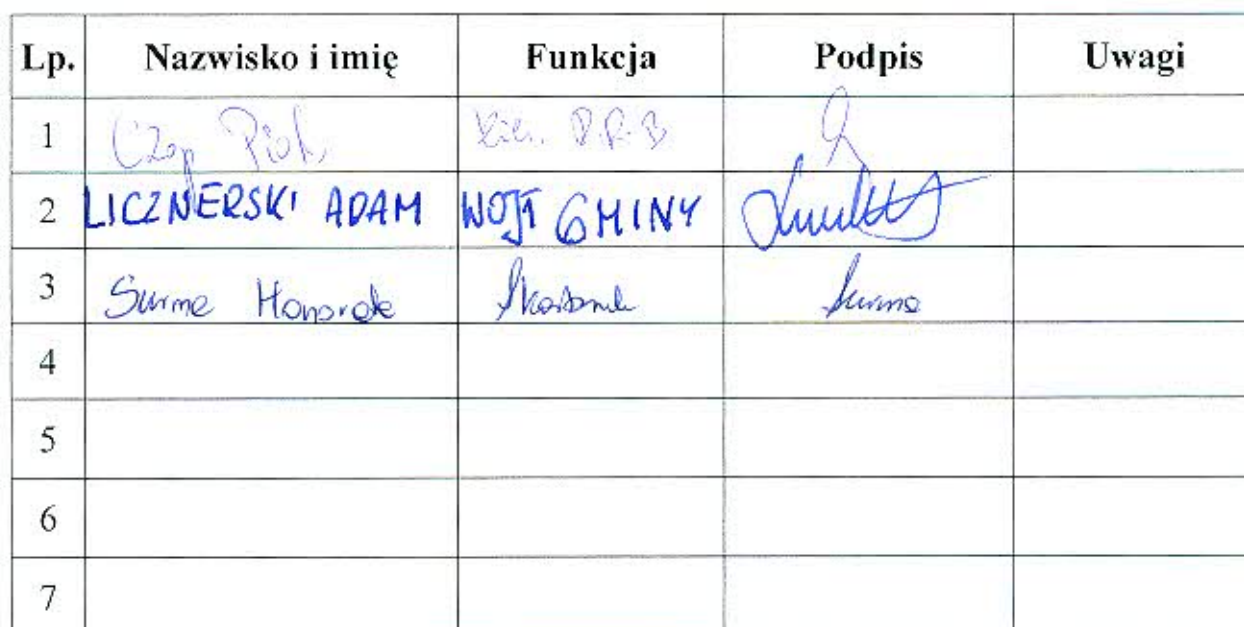 Lp. Nazwisko i imię Funkcja Podpis Uwagi
1 Czop Piotr
2 LICZNERSKI ADAM WÓJT GMINY
3 Surma Honorata Skarbnik Surma
4
5
6
7